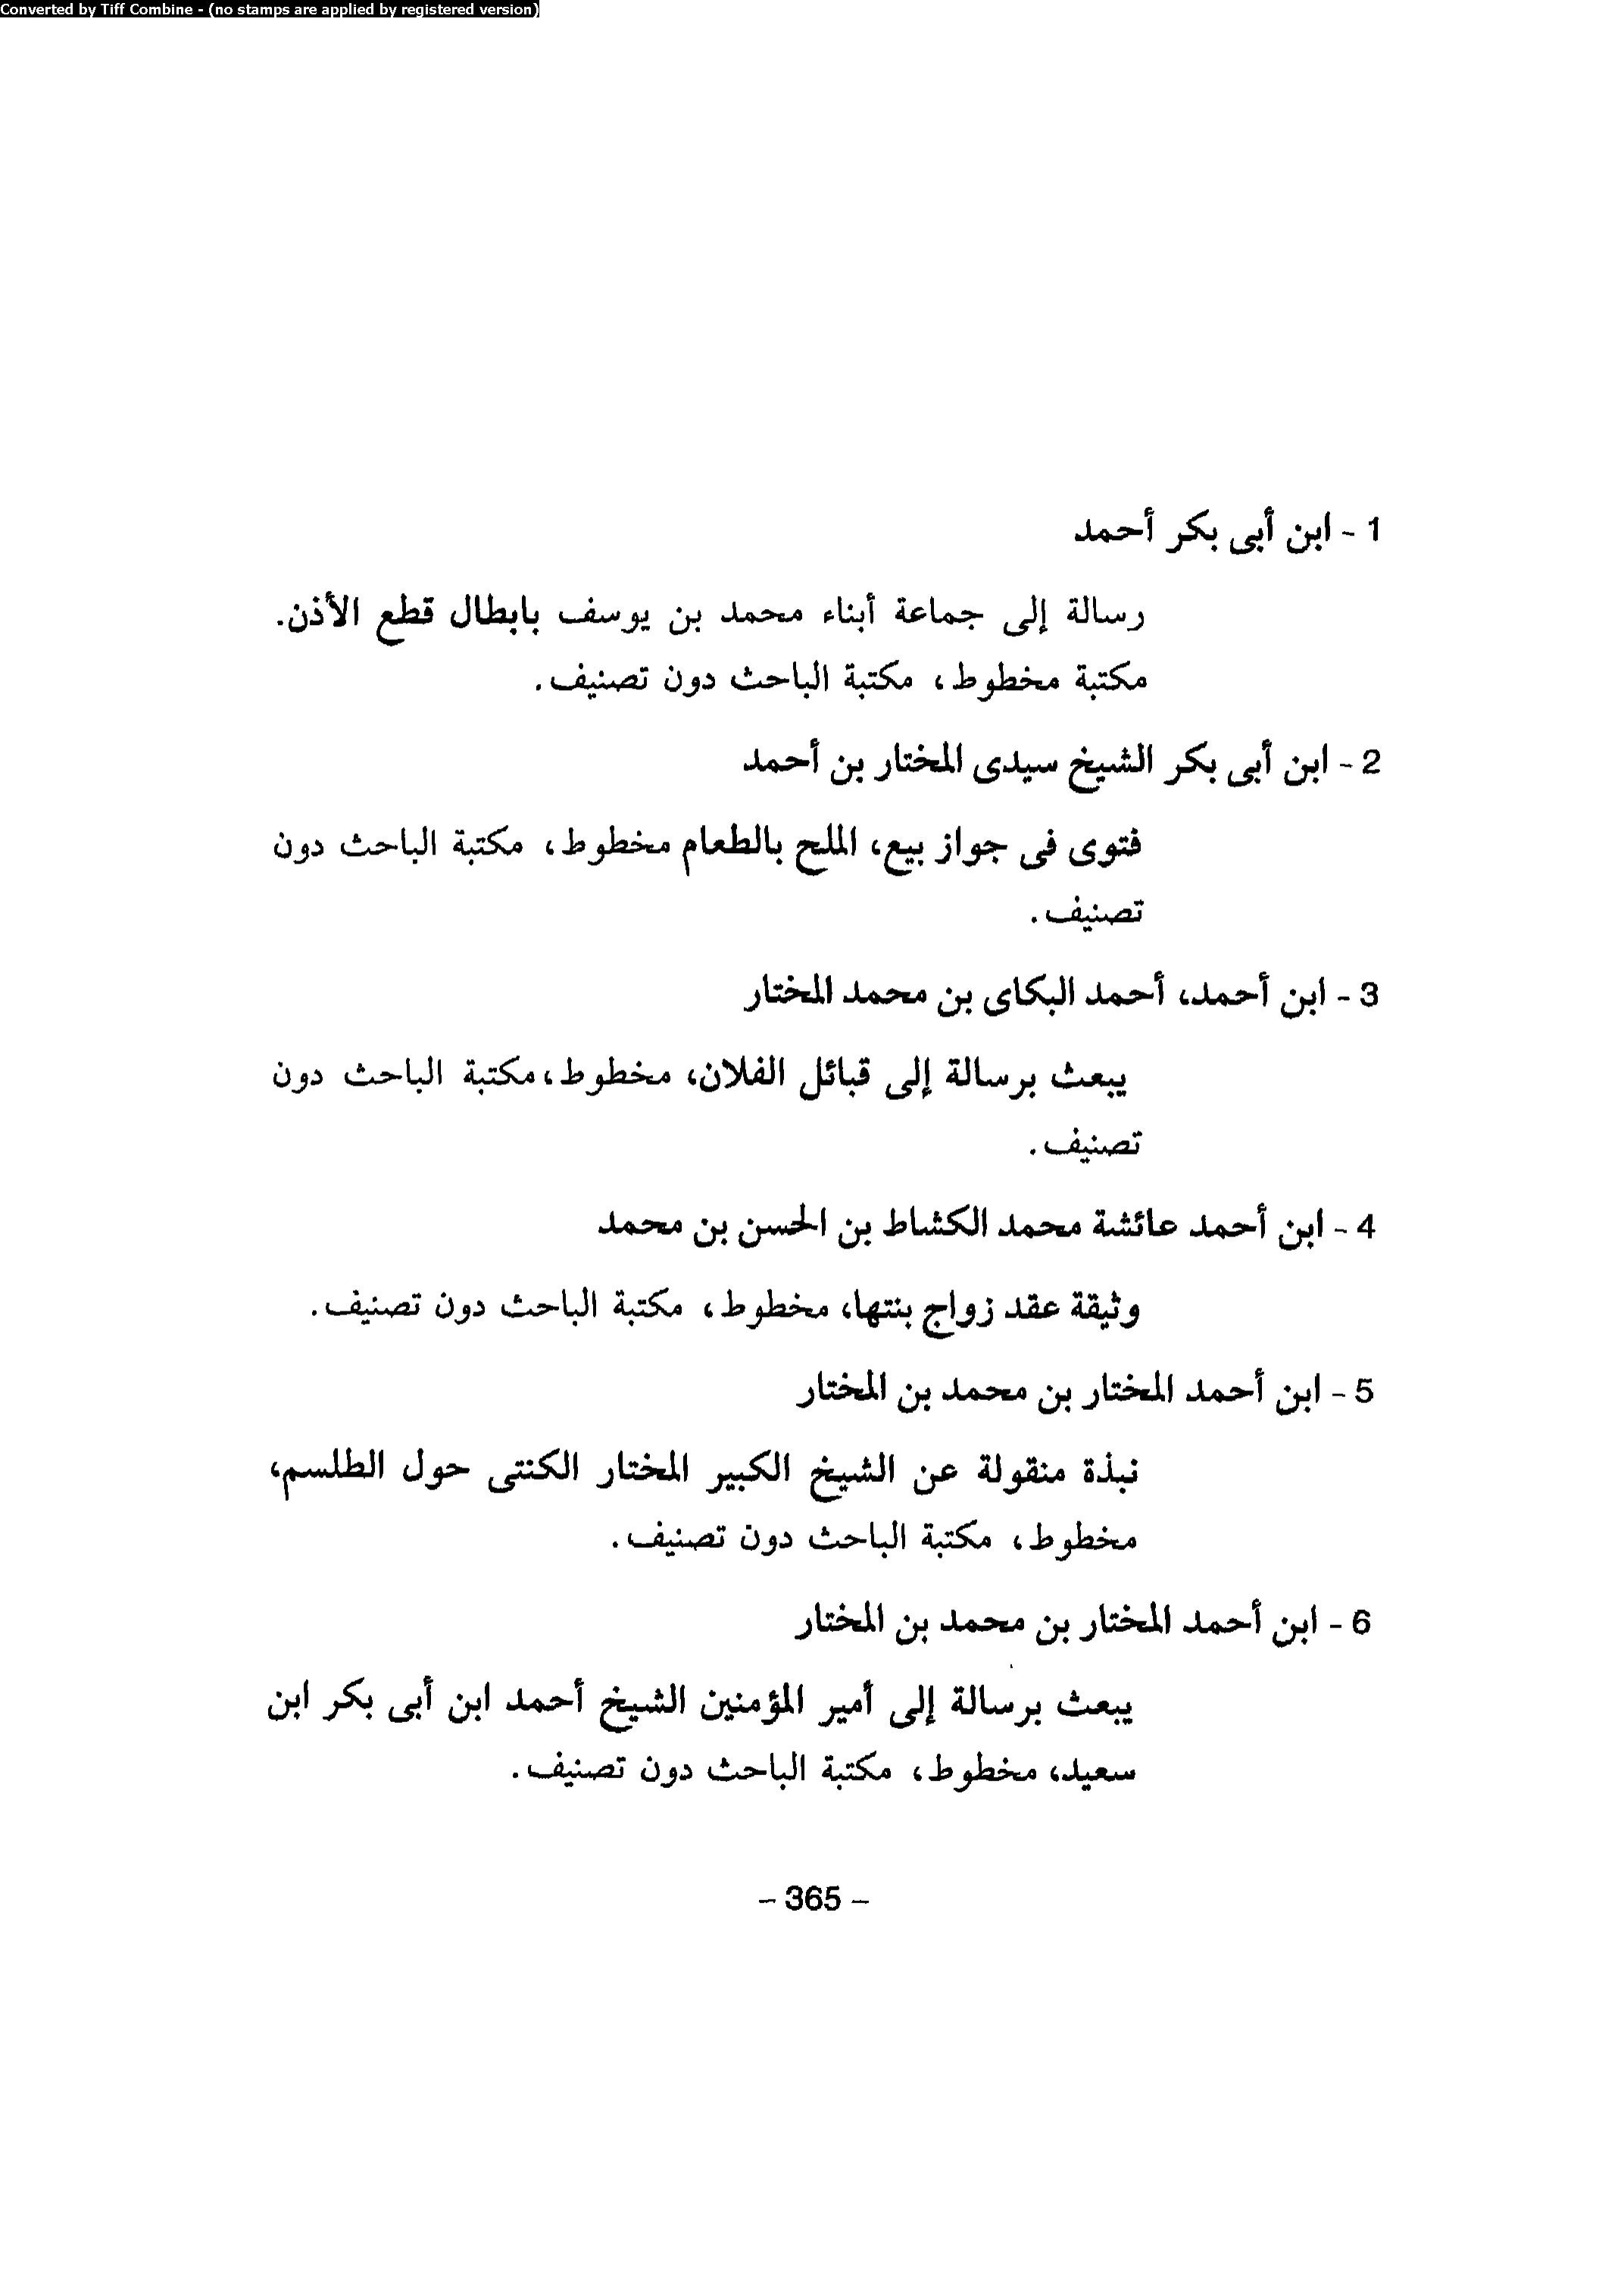 Converted by Tiff Combine - (no stamps are applied by registered version)
1 - ابن أبى بكر أحمد
رسالة إلى جماعة أبناء محمد بن يوسف بابطال قطع الأذن.
مكتبة مخطوط، مكتبة الباحث دون تصنيف.
2 - ابن أبى بكر الشيخ سيدى المختار بن أحمد
فتوى فى جواز بيع، الملح بالطعام مخطوط، مكتبة الباحث دون
تصنيف.
3 - ابن أحمد، أحمد البكاى بن محمد المختار
يبعث برسالة إلى قبائل الفلان، مخطوط، مكتبة الباحث دون
تصنيف.
4 - ابن أحمد عائشة محمد الكشاط بن الحسن بن محمد
وثيقة عقد زواج بنتها، مخطوط، مكتبة الباحث دون تصنيف.
5 - ابن أحمد المختار بن محمد بن المختار
نبذة منقولة عن الشيخ الكبير المختار الكنتى حول الطلسم،
مخطوط، مكتبة الباحث دون تصنيف.
6 - ابن أحمد المختار بن محمد بن المختار
يبعث برسالة إلى أمير المؤمنين الشيخ أحمد ابن أبى بكر ابن
سعيد، مخطوط، مكتبة الباحث دون تصنيف.
- 365 -